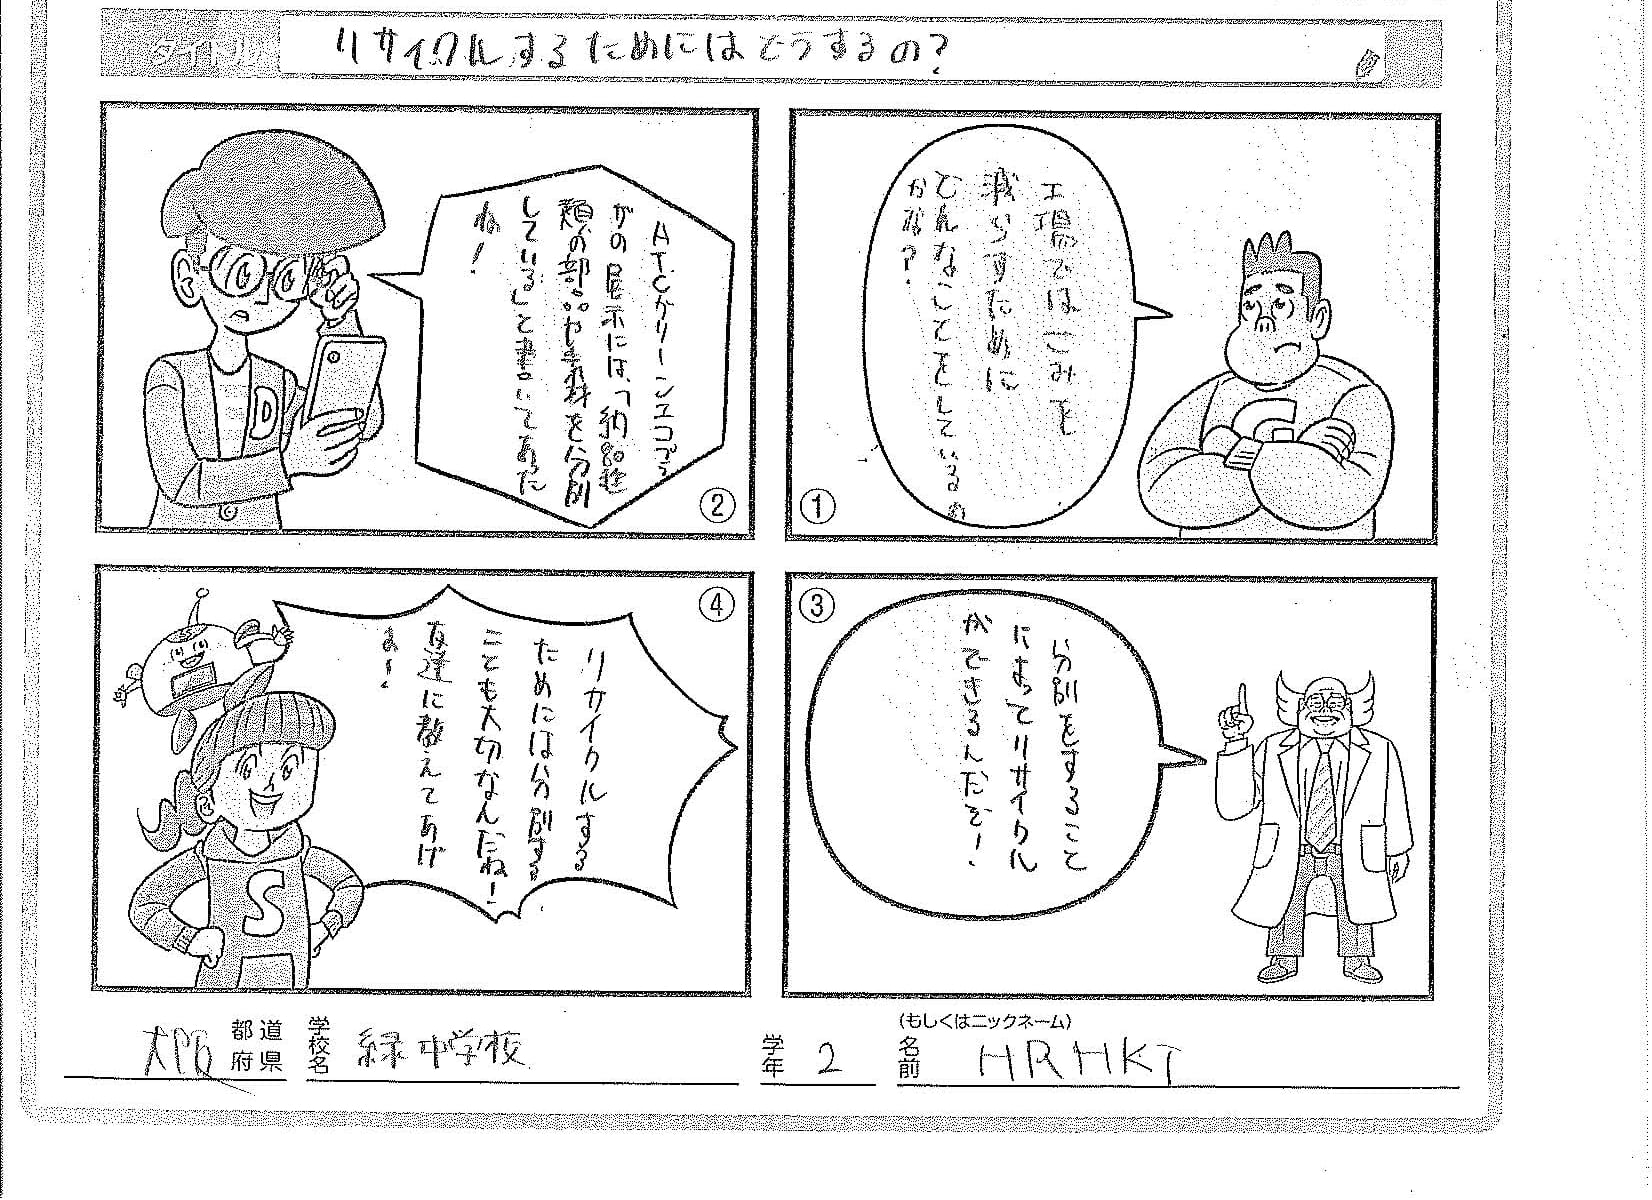 タイトル
リサイクルするためにはどうするの?
①
工場ではごみを
減らすために
どんなことをしているの
かな?
②
ATCグリーンエコプラ
ザの展示には、「約80種
類の部品や素材を分別
している」と書いてあった
ね!
③
分別をすること
によってリサイクル
ができるんだぞ!
④
リサイクルする
ためには分別する
ことも大切なんだね!
友達に教えてあげ
よ!
大阪 都道府県
学校名 緑中学校
学年 2
(もしくはニックネーム)
名前 HRHKT